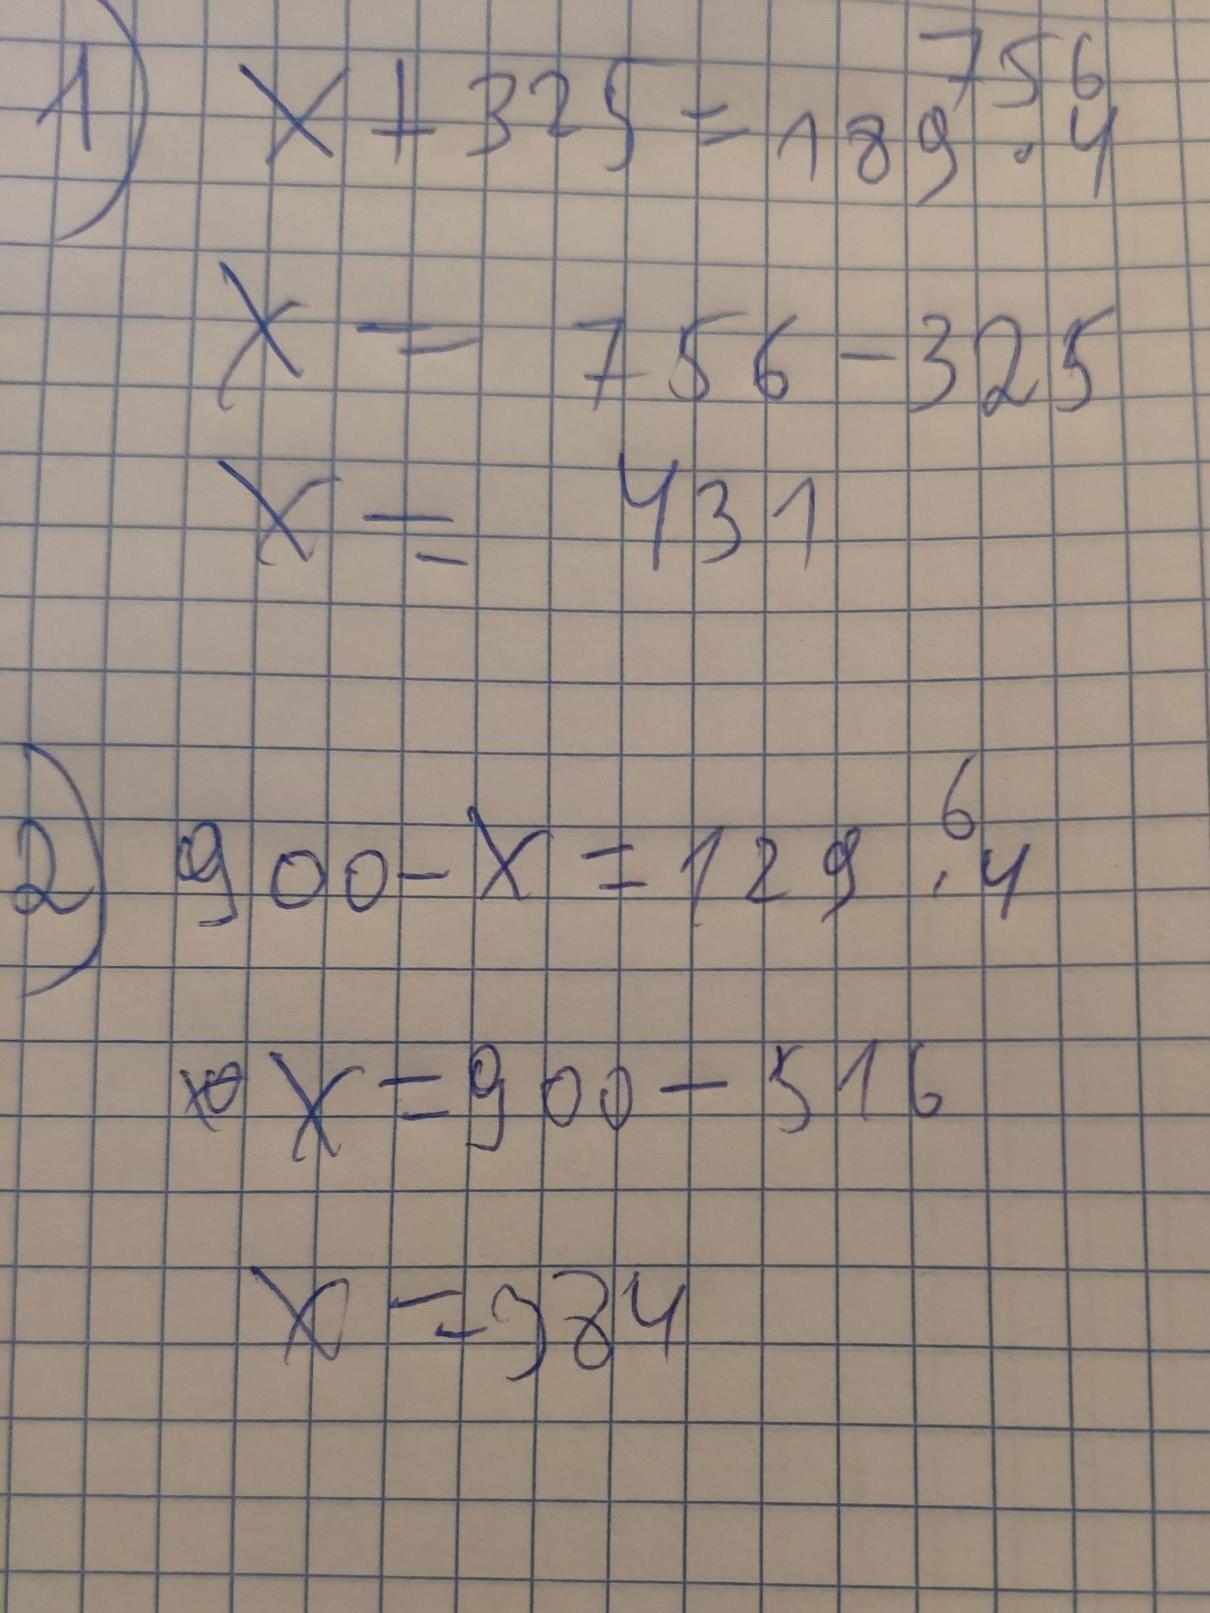 756
1) x + 325 = 189 · 4
x = 756 - 325
x = 431
6
2) 900 - x = 129 · 4
x = 900 - 516
x = 384